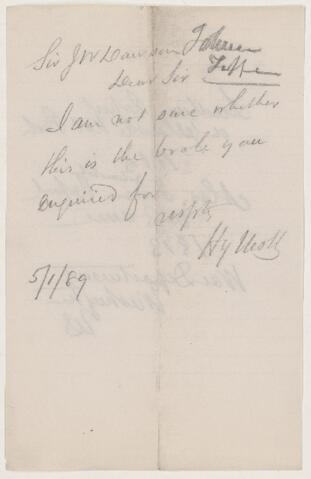 Sir J W Dawson
Dear Sir
I am not sure whether
this is the book you
enquired for
respty
Hy Mott
5/1/89